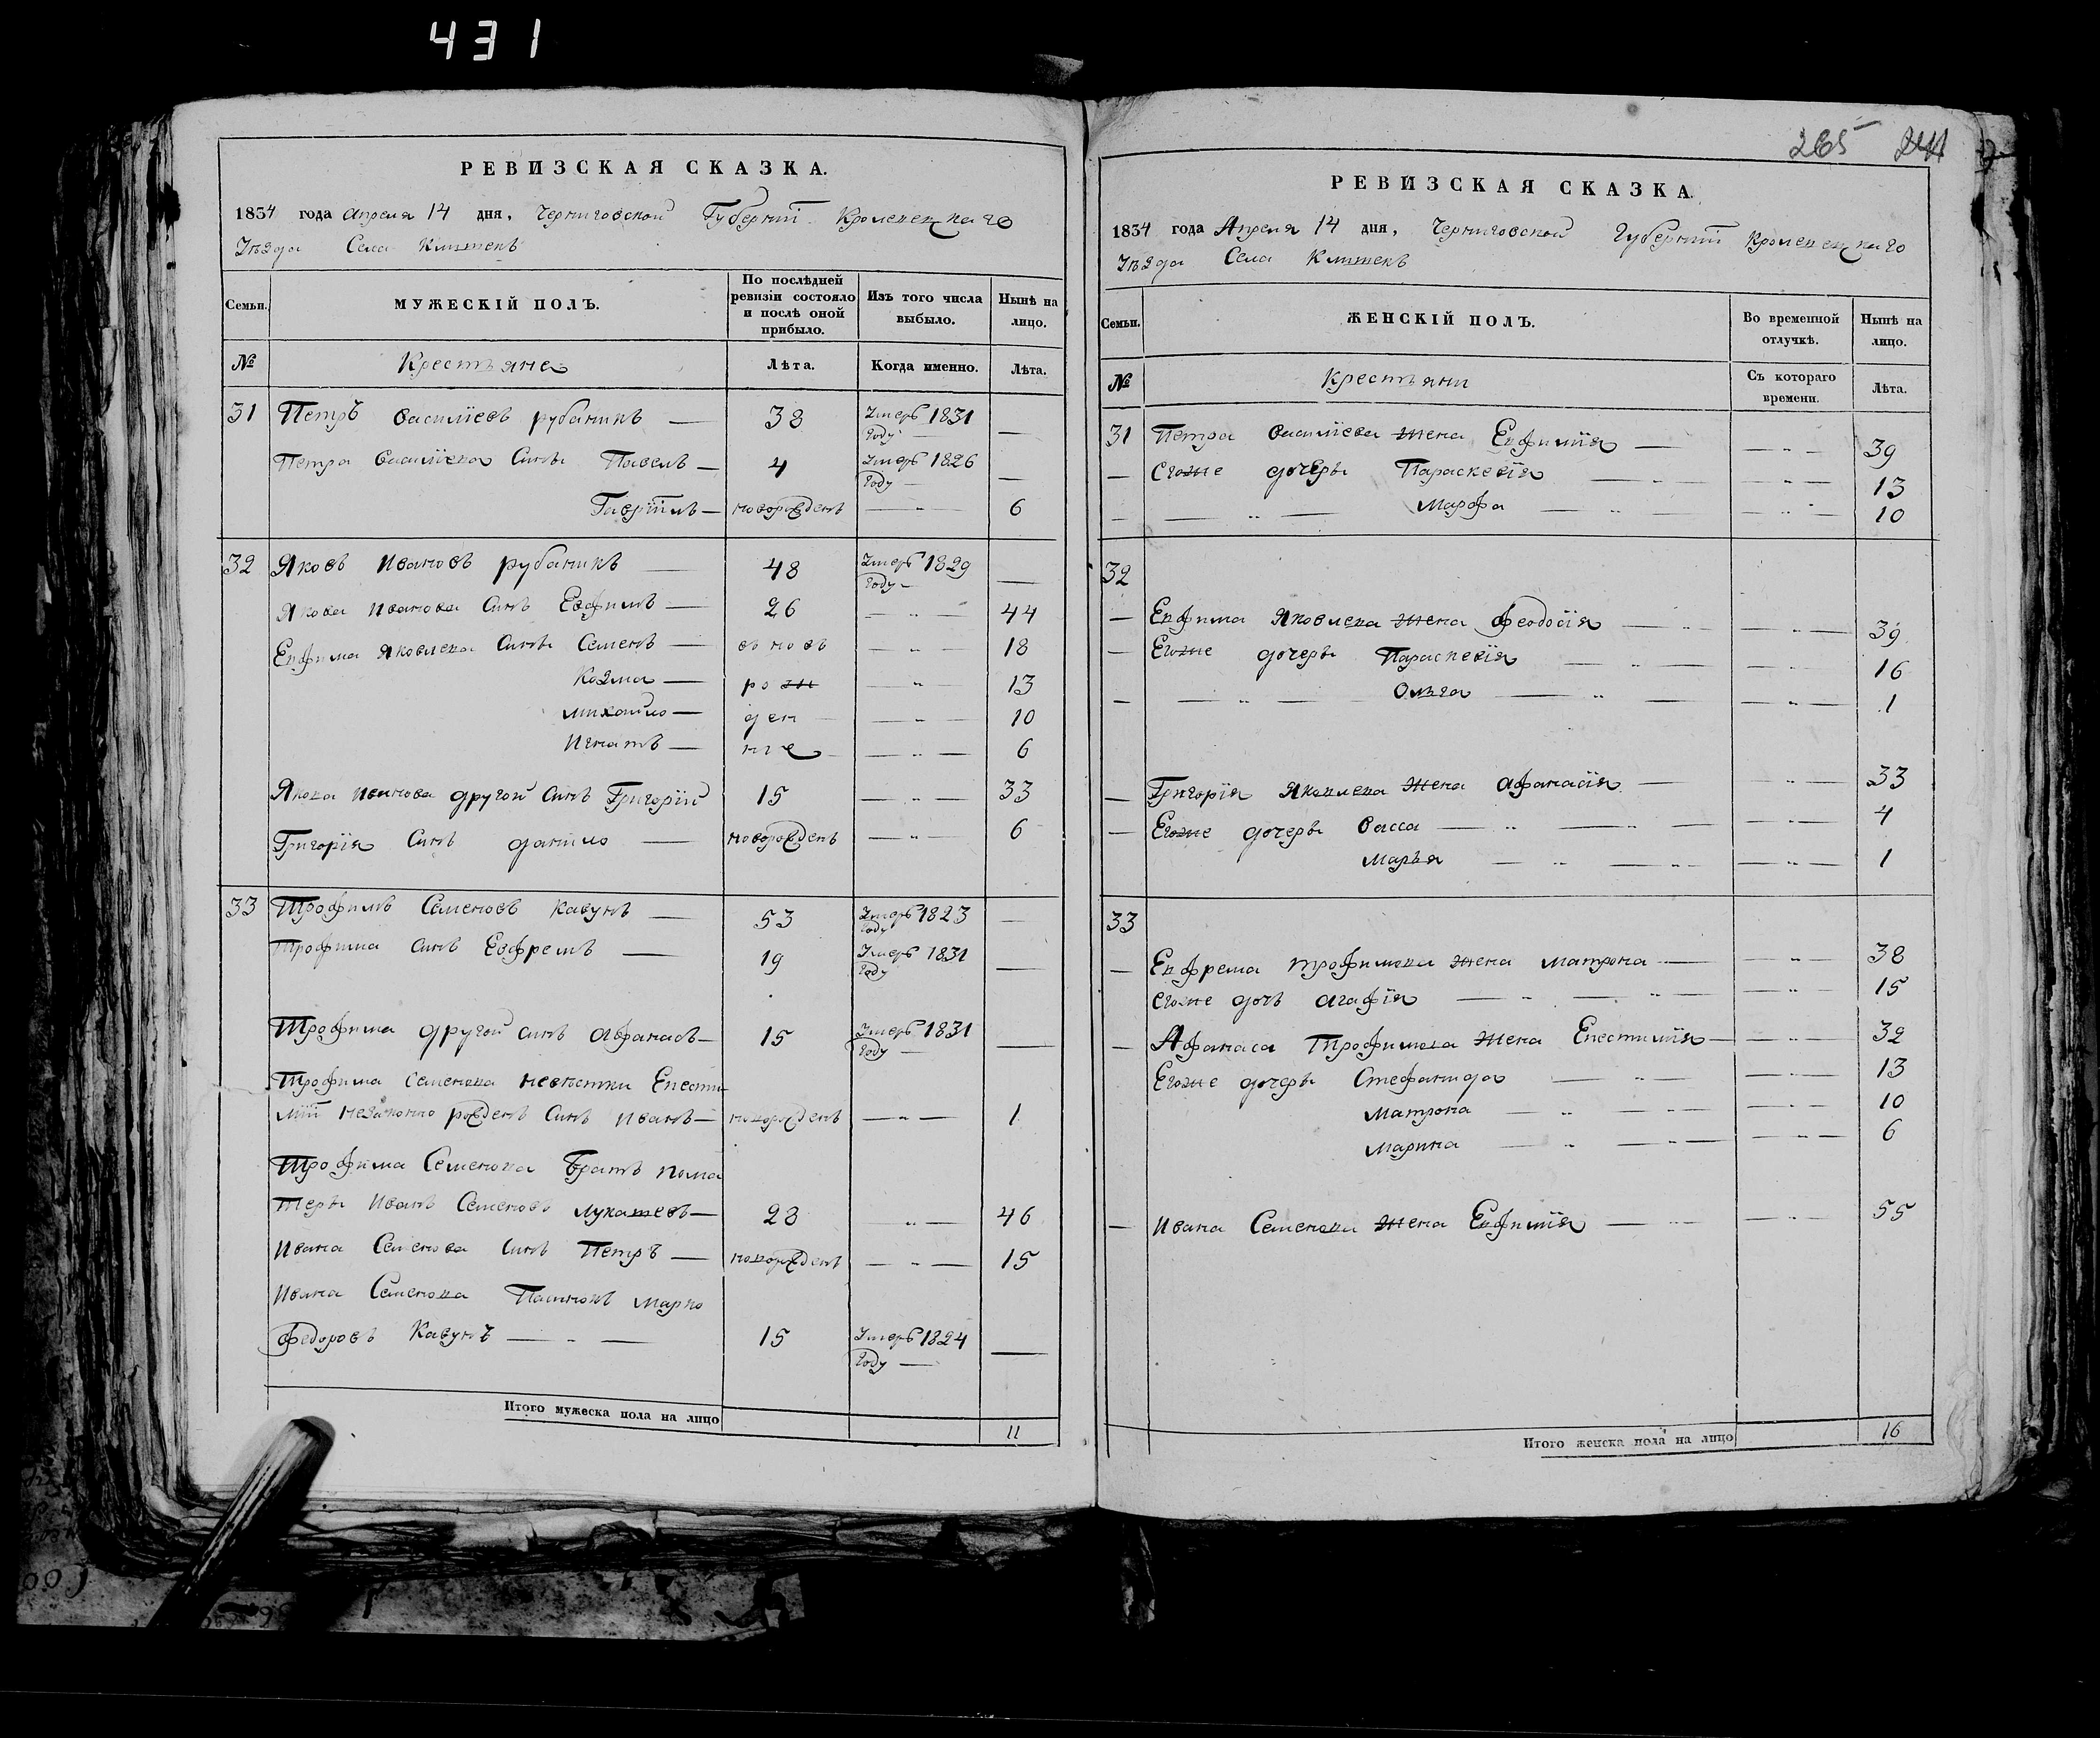 431
РЕВИЗСКАЯ СКАЗКА.
1834 года апреля 14 дня, Черниговской Губернїи Кролевецкаго
Уѣзда Села Клишекъ
Семьи. МУЖЕСКІЙ ПОЛЪ. По послѣдней ревизіи состояло и послѣ оной прибыло. Изъ того числа выбыло. Нынѣ на лицо.
№ Крестьяне Лѣта. Когда именно. Лѣта.
31 Петръ василїевъ рубаникъ — 38 Умеръ 1831 Году —
Петра василїева Синъ Павелъ — 4 Умеръ 1826 Году —
Гаврїилъ — новорожденъ — 6
32 Яковъ Ивановъ рубаникъ — 48 Умеръ 1829 Году —
Якова Иванова Синъ Евфимъ — 26 — 44
Евфима Яковлева Синъ Семенъ — вновъ — 18
Козма — рож — 13
михайло — ден — 10
Игнатъ — ніе — 6
Якова Иванова другой Синъ Григорїй 15 — 33
Григорїя Синъ данило — новорожденъ — 6
33 Трофимъ Семеновъ Кавунъ — 53 Умеръ 1823 Году —
Трофима Синъ Евфремъ — 19 Умеръ 1831 Году —
Трофима другой синъ Афанасъ — 15 Умеръ 1831 Году —
Трофима Семенова невѣстки Евсти
мїи незаконно рожденъ Синъ Иванъ — новорожденъ — 1
Трофима Семенова Братъ пома
теръ Иванъ Семеновъ Лукашевъ — 28 — 46
Ивана Семенова Синъ Петръ — новорожденъ — 15
Ивана Семенова Пасинокъ марко
Федоровъ Кавунъ — 15 Умеръ 1824 Году —
Итого мужеска пола на лицо 11
265
РЕВИЗСКАЯ СКАЗКА.
1834 года Апреля 14 дня, Черниговской Губернїи Кролевецкаго
Уѣзда Села Клишекъ
Семьи. ЖЕНСКІЙ ПОЛЪ. Во временной отлучкѣ. Нынѣ на лицо.
№ Крестьяни Съ котораго времени. Лѣта.
31 Петра василїева Жена Евфимїя — 39
— Егоже дочеръ Параскевїя — 13
— Марфа — 10
32
— Евфима Яковлева Жена Феодосїя — 39
— Егоже дочеръ Параскевїя — 16
— Олга — 1
— Григорїя Яковлева Жена Афанасїя — 33
— Егоже дочеръ васса — 4
Марья — 1
33
— Евфрема трофимова жена матрона — 38
егоже дочъ агафїя — 15
— Афанаса Трофимова Жена Евстимїя — 32
Егоже дочеръ Стефанида — 13
матрона — 10
марина — 6
— Ивана Семенова Жена Евфимїя — 55
Итого женска пола на лицо 16